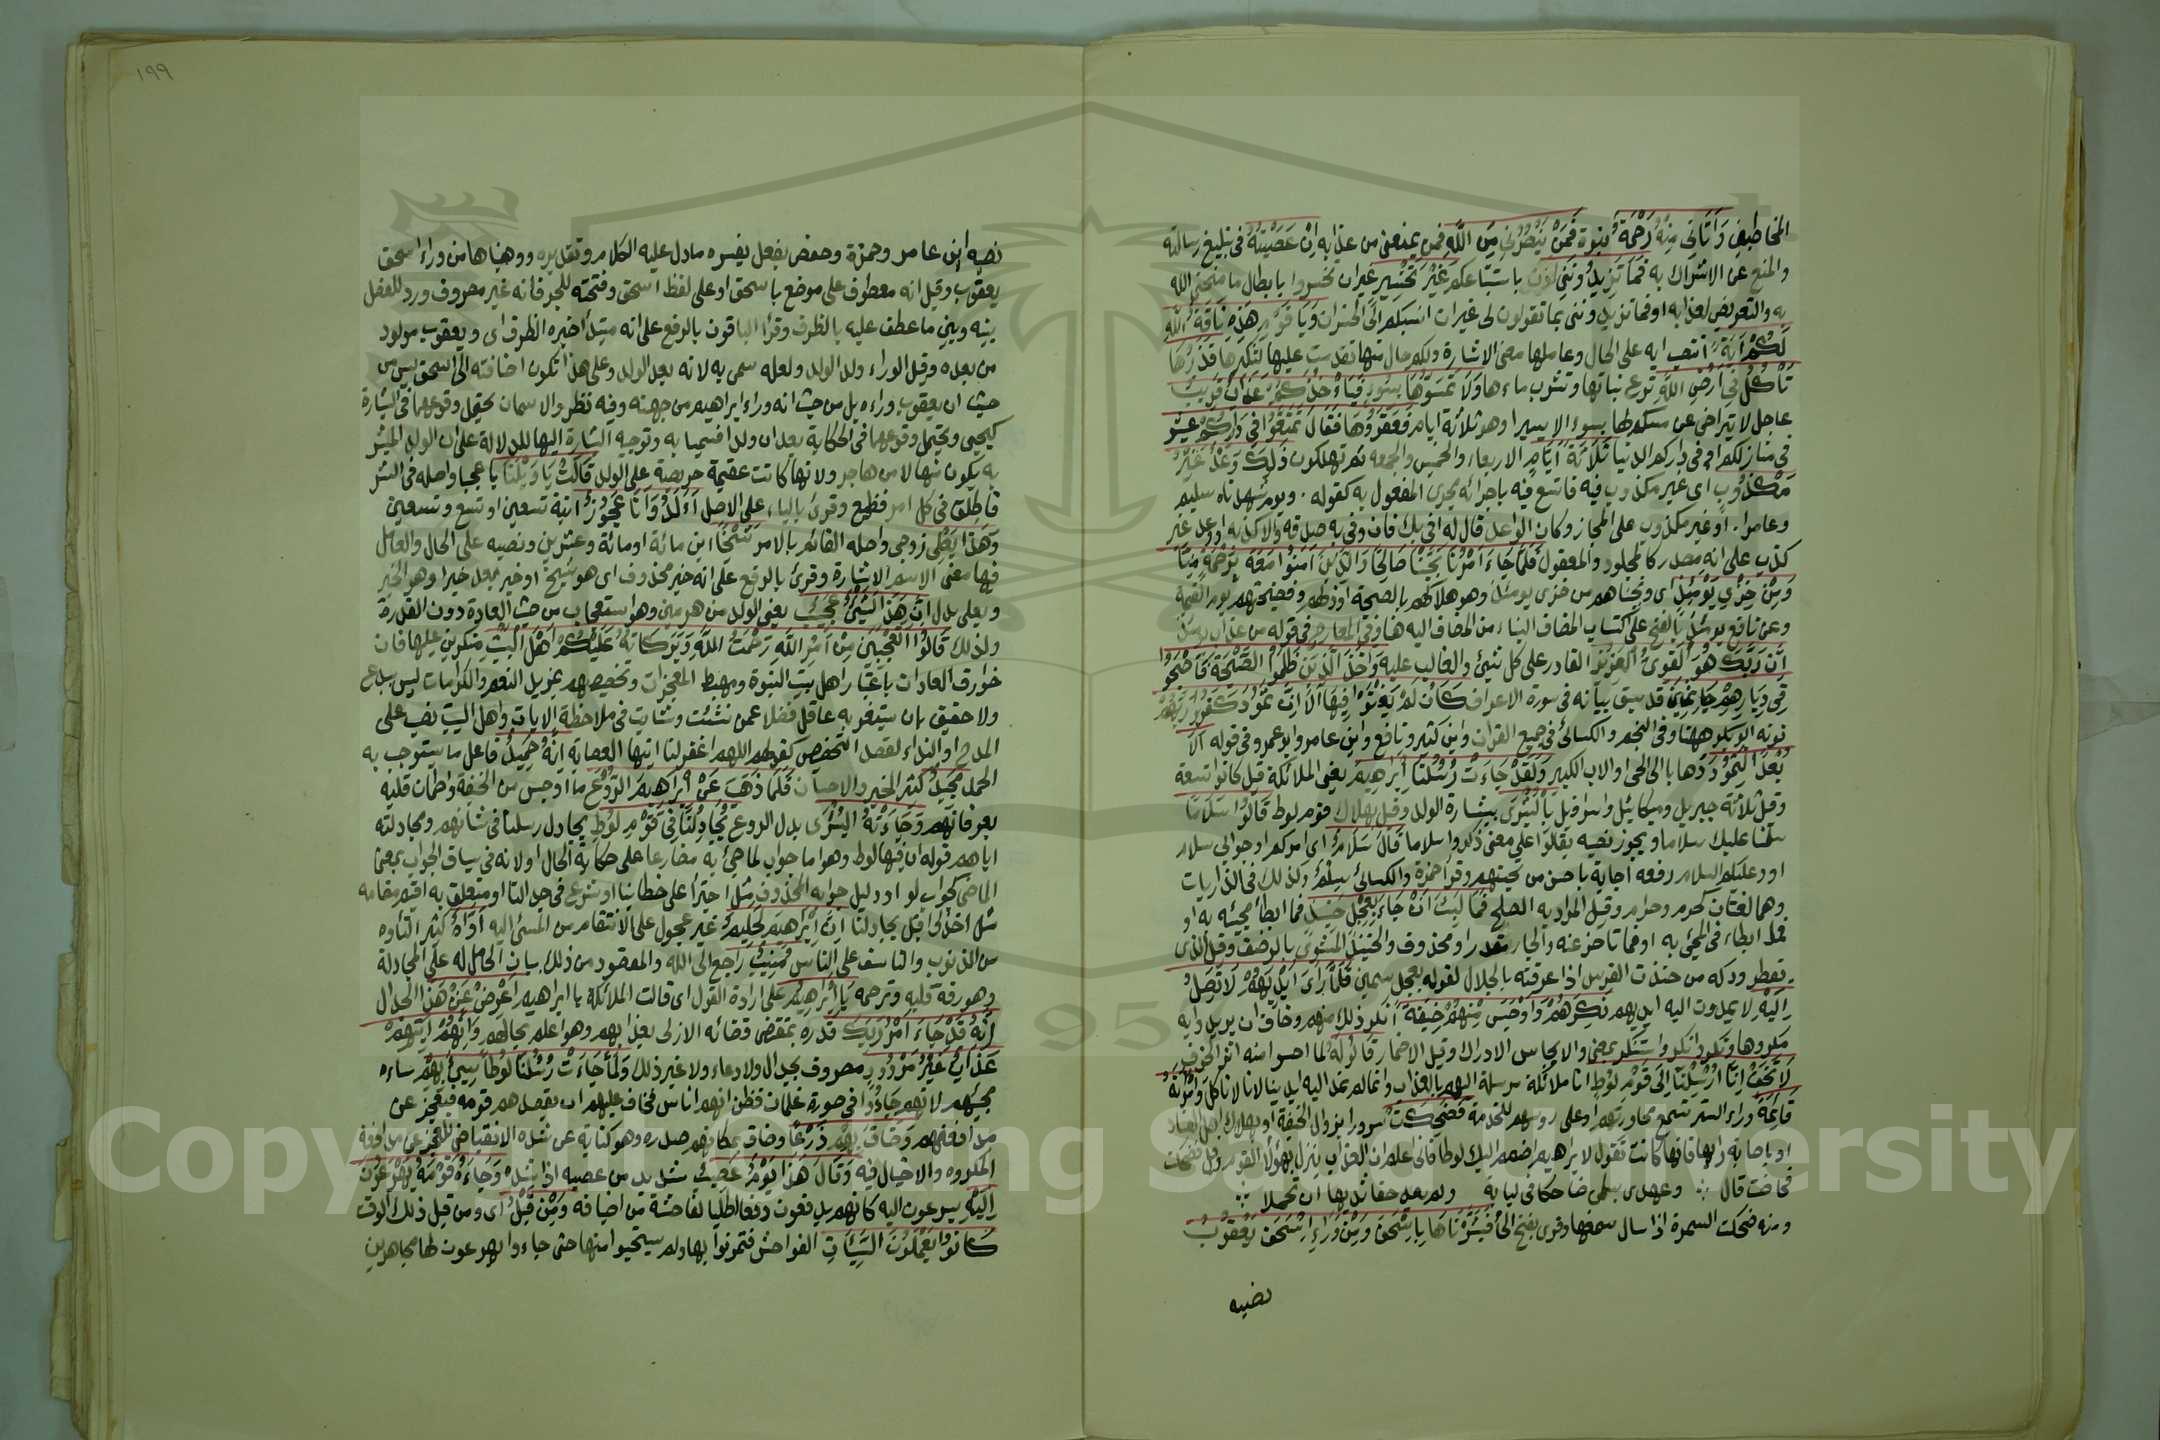 المخاطبين وَآتَانِي مِنْهُ رَحْمَةً نبوة فَمَنْ يَنْصُرُنِي مِنَ اللَّهِ فمن يمنعني من عذابه اِنْ عَصَيْتُهُ في تبليغ رسالته
والمنع عن الاشراك به فَمَا تَزِيدُونَنِي اذن باستتباعكم غَيْرَ تَخْسِيرٍ غير ان تخسروا بابطال ما منحني الله
به والتعريض لعذابه او فما تزيدونني بما تقولون لي غير ان انسبكم الى الخسران وَيَا قَوْمِ هَذِهِ نَاقَةُ اللَّهِ
لَكُمْ آيَةً انتصب ايه على الحال وعاملها معنى الاشارة ولكم حال منها تقدمت عليها لتنكيرها فَذَرُوهَا
تَأْكُلْ فِي اَرْضِ اللَّهِ ترع نباتها وتشرب ماءها وَلَا تَمَسُّوهَا بِسُوءٍ فَيَأْخُذَكُمْ عَذَابٌ قَرِيبٌ
عاجل لا يتراخى عن مسكم لها بسوء الا يسيرا وهو ثلاثة ايام فَعَقَرُوهَا فَقَالَ تَمَتَّعُوا فِي دَارِكُمْ عيشوا
في منازلكم او في داركم الدنيا ثَلَاثَةَ اَيَّامٍ الاربعاء والخميس والجمعه ثم تهلكون ذَلِكَ وَعْدٌ غَيْرُ
مَكْذُوبٍ اى غير مكذوب فيه فاتسع فيه باجرائه مجرى المفعول به كقوله . ويوم شهدناه سليم
وعامرا . او غير مكذوب على المجاز وكان الواعد قال له افي بك فان وفى به صدقه والا كذبه او وعد غير
كذب على انه مصدر كالمجلود والمعقول فَلَمَّا جَاءَ اَمْرُنَا نَجَّيْنَا صَالِحًا وَالَّذِينَ آمَنُوا مَعَهُ بِرَحْمَةٍ مِنَّا
وَمِنْ خِزْيِ يَوْمِئِذٍ اى ونجيناهم من خزى يومئذ وهو هلاكهم بالصيحة او ذلهم وفضيحتهم يوم القيمة
وعن نافع يومئذ بالفتح على اكتساب المضاف البناء من المضاف اليه هنا وفي المعارج في قوله من عذاب يومئذ
اِنَّ رَبَّكَ هُوَ الْقَوِيُّ الْعَزِيزُ القادر على كل شئ والغالب عليه وَاَخَذَ الَّذِينَ ظَلَمُوا الصَّيْحَةُ فَاَصْبَحُوا
فِي دِيَارِهِمْ جَاثِمِينَ قد سبق بيانه في سورة الاعراف كَاَنْ لَمْ يَغْنَوْا فِيهَا اَلَا اِنَّ ثَمُودَ كَفَرُوا رَبَّهُمْ
نونه ابو بكر ههنا وفي النجم والكسائى في جميع القران وابن كثير ونافع وابن عامر وابو عمرو في قوله اَلَا
بُعْدًا لِثَمُودَ ذهابا الى الحى او الاب الاكبر وَلَقَدْ جَاءَتْ رُسُلُنَا اِبْرَاهِيمَ يعنى الملائكة قيل كانوا تسعة
وقيل ثلاثة جبريل وميكائيل واسرافيل بِالْبُشْرَى ببشارة الولد وقيل بهلاك قوم لوط قَالُوا سَلَامًا
سلمنا عليك سلاما ويجوز نصبه بقالوا على معنى ذكروا سلاما قَالَ سَلَامٌ اى امركم او جوابي سلام
او وعليكم السلام رفعه اجابة باحسن من تحيتهم وقرأ حمزة والكسائى سِلْمٌ وكذلك في الذاريات
وهما لغتان كحرم وحرام وقيل المراد به الصلح فَمَا لَبِثَ اَنْ جَاءَ بِعِجْلٍ حَنِيذٍ فما ابطأ مجيئه به او
فما ابطاء في المجئ به او فما تاخر عنه والجار مقدر او محذوف والحنيذ المشوى بالرضف وقيل الذى
يقطر ودكه من حنذت الفرس اذا عرقته بالجلال لقوله بعجل سمين فَلَمَّا رَاَى اَيْدِيَهُمْ لَا تَصِلُ
اِلَيْهِ لا يمدون اليه ايديهم نَكِرَهُمْ وَاَوْجَسَ مِنْهُمْ خِيفَةً انكر ذلك منهم وخاف ان يريدوا به
مكروها ونكر وانكر واستنكر بمعنى والايجاس الادراك وقيل الاضمار قَالُوا له لما احسوا منه اثر الخوف
لَا تَخَفْ اِنَّا اُرْسِلْنَا اِلَى قَوْمِ لُوطٍ انا ملائكة مرسلة اليهم بالعذاب وانما لم نمد اليه ايدينا لانا لا ناكل وَامْرَاَتُهُ
قَائِمَةٌ وراء الستر تتسمع محاورتهم او على روسهم للخدمة فَضَحِكَتْ سرورا بزوال الخيفة او بهلاك اهل الفساد
او باصابة رايها فانها كانت تقول لابراهيم اضمم اليك لوطا فاني اعلم ان العذاب ينزل بهؤلاء القوم وقيل فضحكت
فحاضت قال ∴ وعهدى بسلمى ضاحكا في لبابة ولم يعد حقا ثديها ان تحلما ∴
ومنه ضحكت السمرة اذا سال صمغها وقرى بفتح الحاء فَبَشَّرْنَاهَا بِاِسْحَقَ وَمِنْ وَرَاءِ اِسْحَقَ يَعْقُوبَ
نصبه
١٩٩
نصبه ابن عامر وحمزة وحفص بفعل يفسره ما دل عليه الكلام وتقديره ووهبناها من وراء اسحق
يعقوب وقيل انه معطوف على موضع باسحق او على لفظ اسحق وفتحته للجر فانه غير مصروف ورد للفصل
بينه وبين ما عطف عليه بالظرف وقرأ الباقون بالرفع على انه مبتدأ خبره الظرف اى ويعقوب مولود
من بعده وقيل الوراء ولد الولد ولعله سمى به لانه بعد الولد وعلى هذا تكون اضافته الى اسحق ليس من
حيث ان يعقوب وراءه بل من حيث انه وراء ابراهيم من جهته وفيه نظر والاسمان يحتمل وقوعهما في البشارة
كيحيى ويحتمل وقوعهما في الحكاية بعد ان ولدا فسميا به وتوجيه البشارة اليها للدلالة على ان الولد المبشر
به يكون منها لا من هاجر ولانها كانت عقيمة حريصة على الولد قَالَتْ يَا وَيْلَتَا يا عجبا واصله في الشر
فاطلق في كل امر فظيع وقرئ بالياء على الاصل ءَاَلِدُ وَاَنَا عَجُوزٌ ابنة تسعين او تسع وتسعين
وَهَذَا بَعْلِي زوجى واصله القائم بالامر شَيْخًا ابن مائة او مائة وعشرين ونصبه على الحال والعامل
فيها معنى الاسم الاشارة وقرئ بالرفع على انه خبر محذوف اى هو شيخ او خبر بعد خبر او هو الخبر
وبعلى بدل اِنَّ هَذَا لَشَيْءٌ عَجِيبٌ يعنى الولد من هرمين وهو استعجاب من حيث العادة دون القدرة
ولذلك قَالُوا اَتَعْجَبِينَ مِنْ اَمْرِ اللَّهِ رَحْمَتُ اللَّهِ وَبَرَكَاتُهُ عَلَيْكُمْ اَهْلَ الْبَيْتِ منكرين عليها فان
خوارق العادات باعتبار اهل بيت النبوة ومهبط المعجزات وتخصيصهم بمزيد النعم والكرامات ليس ببدع
ولا حقيق بان يستغربه عاقل فضلا عمن نشئت وشابت في ملاحظة الايات واهل البيت نصب على
المدح او النداء لقصد التخصيص كقولهم اللهم اغفر لنا ايتها العصابة اِنَّهُ حَمِيدٌ فاعل ما يستوجب به
الحمد مَجِيدٌ كثير الخير والاحسان فَلَمَّا ذَهَبَ عَنْ اِبْرَاهِيمَ الرَّوْعُ ما اوجس من الخيفة واطمأن قلبه
بعرفانهم وَجَاءَتْهُ الْبُشْرَى بدل الروع يُجَادِلُنَا فِي قَوْمِ لُوطٍ يجادل رسلنا في شانهم ومجادلته
اياهم قوله ان فيها لوط وهو اما جواب لما جئ به مضارعا على حكاية الحال او لانه في سياق الجواب بمعنى
الماضي كجواب لو او دليل جوابه المحذوف مثل اجترأ على خطابنا او شرع في جدالنا او متعلق به اقيم مقامه
مثل اخذ او اقبل يجادلنا اِنَّ اِبْرَاهِيمَ لَحَلِيمٌ غير عجول على الانتقام من المسئ اليه اَوَّاهٌ كثير التأوه
من الذنوب والتاسف على الناس مُنِيبٌ راجع الى الله والمقصود من ذلك بيان الحامل له على المجادلة
وهو رقة قلبه وترحمه يَا اِبْرَاهِيمُ على ارادة القول اى قالت الملائكة يا ابراهيم اَعْرِضْ عَنْ هَذَا الجدال
اِنَّهُ قَدْ جَاءَ اَمْرُ رَبِّكَ قدره بمقتضى قضائه الازلى بعذابهم وهو اعلم بحالهم وَاِنَّهُمْ آتِيهِمْ
عَذَابٌ غَيْرُ مَرْدُودٍ مصروف بجدال ولا دعاء ولا غير ذلك وَلَمَّا جَاءَتْ رُسُلُنَا لُوطًا سِيءَ بِهِمْ ساءه
مجيئهم لانهم جاءُوا في صورة غلمان فظن انهم اناس فخاف عليهم ان يقصدهم قومه فيعجز عن
مدافعتهم وَضَاقَ بِهِمْ ذَرْعًا وضاق بمكانهم صدره وهو كناية عن شدة الانقباض للعجز عن مدافعة
المكروه والاحتيال فيه وَقَالَ هَذَا يَوْمٌ عَصِيبٌ شديد من عصبه اذا شده وَجَاءَهُ قَوْمُهُ يُهْرَعُونَ
اِلَيْهِ يسرعون اليه كانهم يدفعون دفعا لطلب الفاحشة من اضيافه وَمِنْ قَبْلُ اى ومن قبل ذلك الوقت
كَانُوا يَعْمَلُونَ السَّيِّئَاتِ الفواحش فتمرنوا بها ولم يستحيوا منها حتى جاءوا يهرعون لها مجاهرين
Copyright © King Saud University